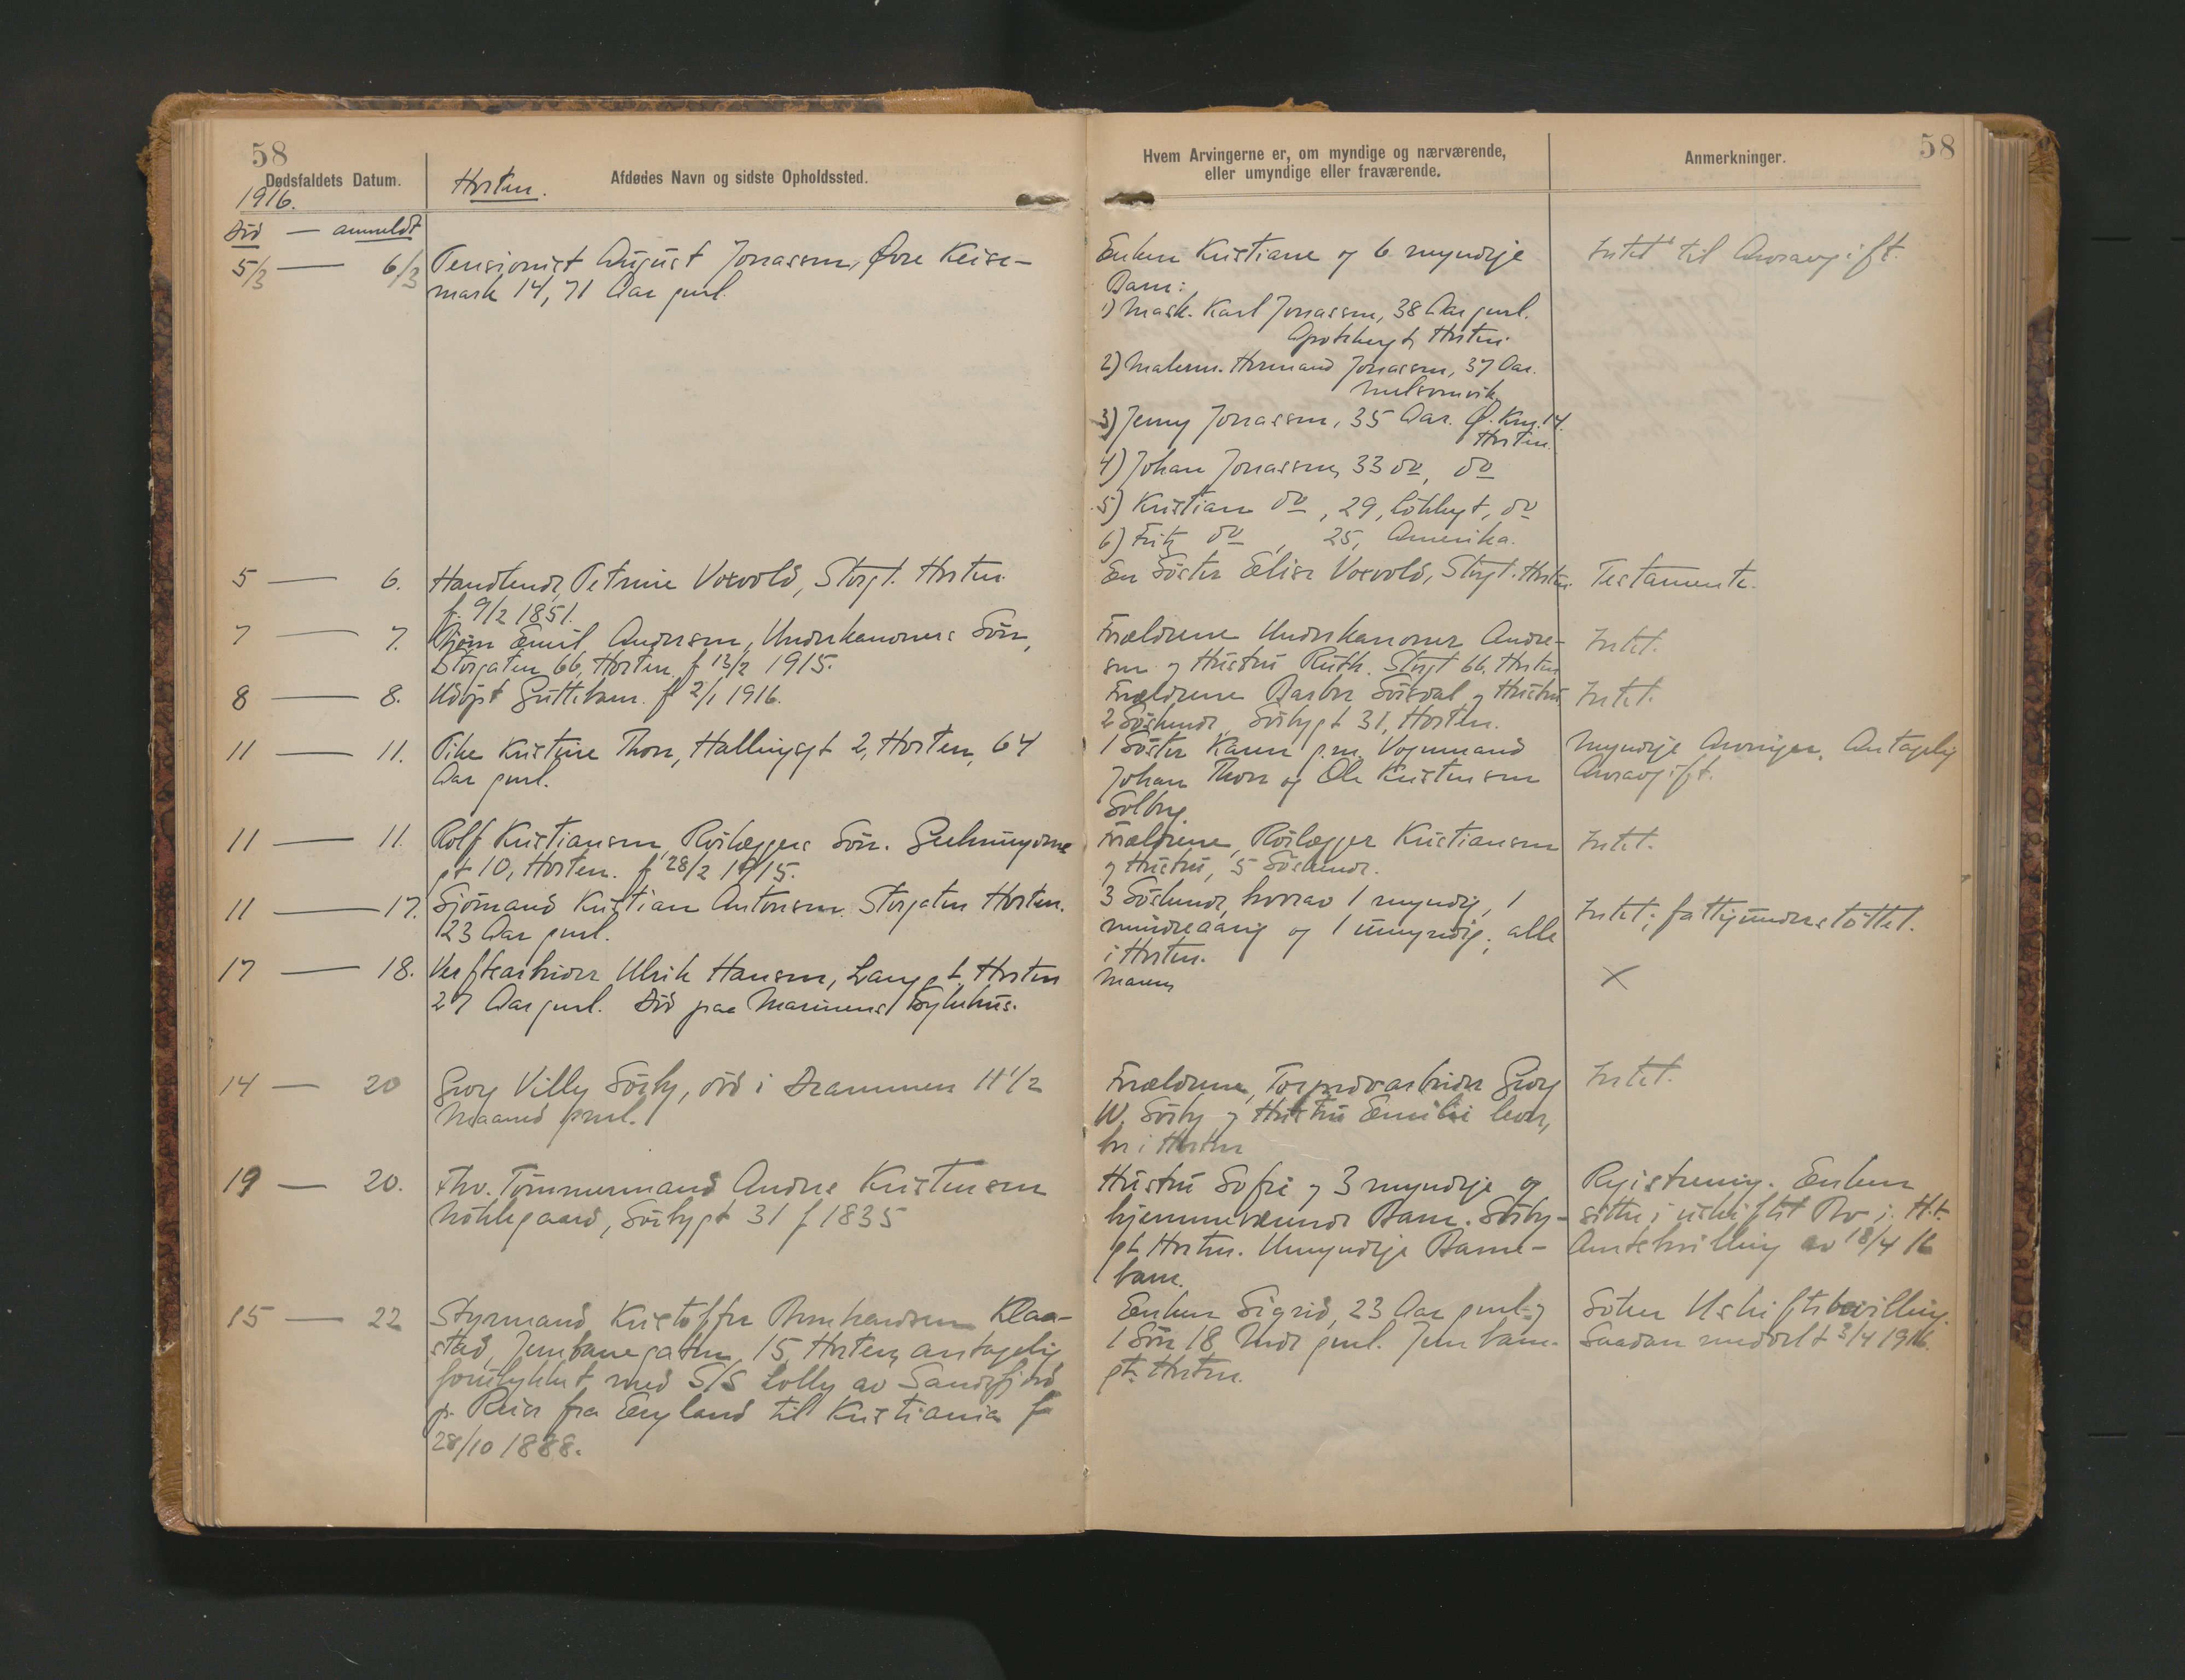 58
Dødsfaldets Datum.
1916.
Horten.
Afdødes Navn og sidste Opholdssted.
Død — anmeldt
5/3 — 6/3 Pensionist August Jonassen, Øvre Keise-
mark 14, 71 Aar gml.
5 — 6. Handlende Petrine Voxvold, Storgt. Horten.
f. 9/2 1851.
7 — 7. Bjørn Emil Andersen, Underkanoners Søn,
Storgaten 66, Horten, f 13/2 1915.
8 — 8. Udøpt Guttebarn. f 2/1 1916.
11 — 11. Pike Kristine Thon, Hallingsgt 2, Horten, 64
Aar gml.
11 — 11. Rolf Kristiansen, Rørlæggers Søn.
gt 10, Horten. f 28/2 1915.
11 — 17. Sjømand Kristian Antonsen. Storgaten Horten.
23 Aar gml.
17 — 18. Verftsarbeider Ulrik Hansen, Langgt, Horten
27 Aar gml. Død paa Marinens Sykehus.
14 — 20 Georg Villy Sörby, død i Drammen 11 1/2
Maaned gml.
19 — 20. Fhv. Tömmermand Andres Kristensen
Nöklegaard, Sörbygt 31 f 1835
15 — 22 Styrmand Kristoffer Bernhardsen Klaa-
stad, Jernbanegaten 15, Horten, antagelig
forulykket med S/S Lolly av Sandefjord
p. Reise fra England til Kristiania f
28/10 1888.
58
Hvem Arvingerne er, om myndige og nærværende,
eller umyndige eller fraværende.
Anmerkninger.
Enken Kristiane og 6 myndige
Barn:
Intet til Arveavgift.
1) Mask. Karl Jonassen, 38 Aar gml.
Horten.
2) Malerm. Hermand Jonassen, 37 Aar.
Melsomvik
3) Jenny Jonassen, 35 Aar. Ø. Km. 14.
Horten.
4) Johan Jonassen, 33 do, do
5) Kristian do, 29, do
6) Fritz do, 25, Amerika.
En Söster Elise Voxvold, Storgt. Horten. Testamente.
Forældrene Underkanoner Ander-
sen og Hustru Ruth. Storgt 66, Horten
Intet.
Forældrene og Hustru
2 Söskende, Sörbygt 31, Horten.
Intet.
1 Söster Karen g.m. Vognmand
Johan Thon og Ole Kristensen
Solberg.
Myndige Arvinger. Antagelig
Arveavgift.
Forældrene, Rörlægger Kristiansen
og Hustru, 5 Söskende.
Intet.
3 Söskende, hvorav 1 myndig, 1
mindreaarig og 1 umyndig, alle
i Horten.
Intet; fattigunderstöttet.
Moren
X
Forældrene, Torpedoarbeider Georg
W. Sörby og Hustru Emilie lever,
bor i Horten
Intet.
Hustru Sofie og 3 myndige og
hjemmeværende Barn. Sörby-
gt Horten. Umyndige Barne-
barn.
Registrering. Enken
sitter i uskiftet Bo i H.t.
Amtsbevilling av 18/4 16
Enken Sigrid, 23 Aar gml. og
1 Sön 18 Mdr gml. Jernbane-
gt. Horten.
Söker Uskiftebevilling.
Saadan meddelt 3/4 1916.